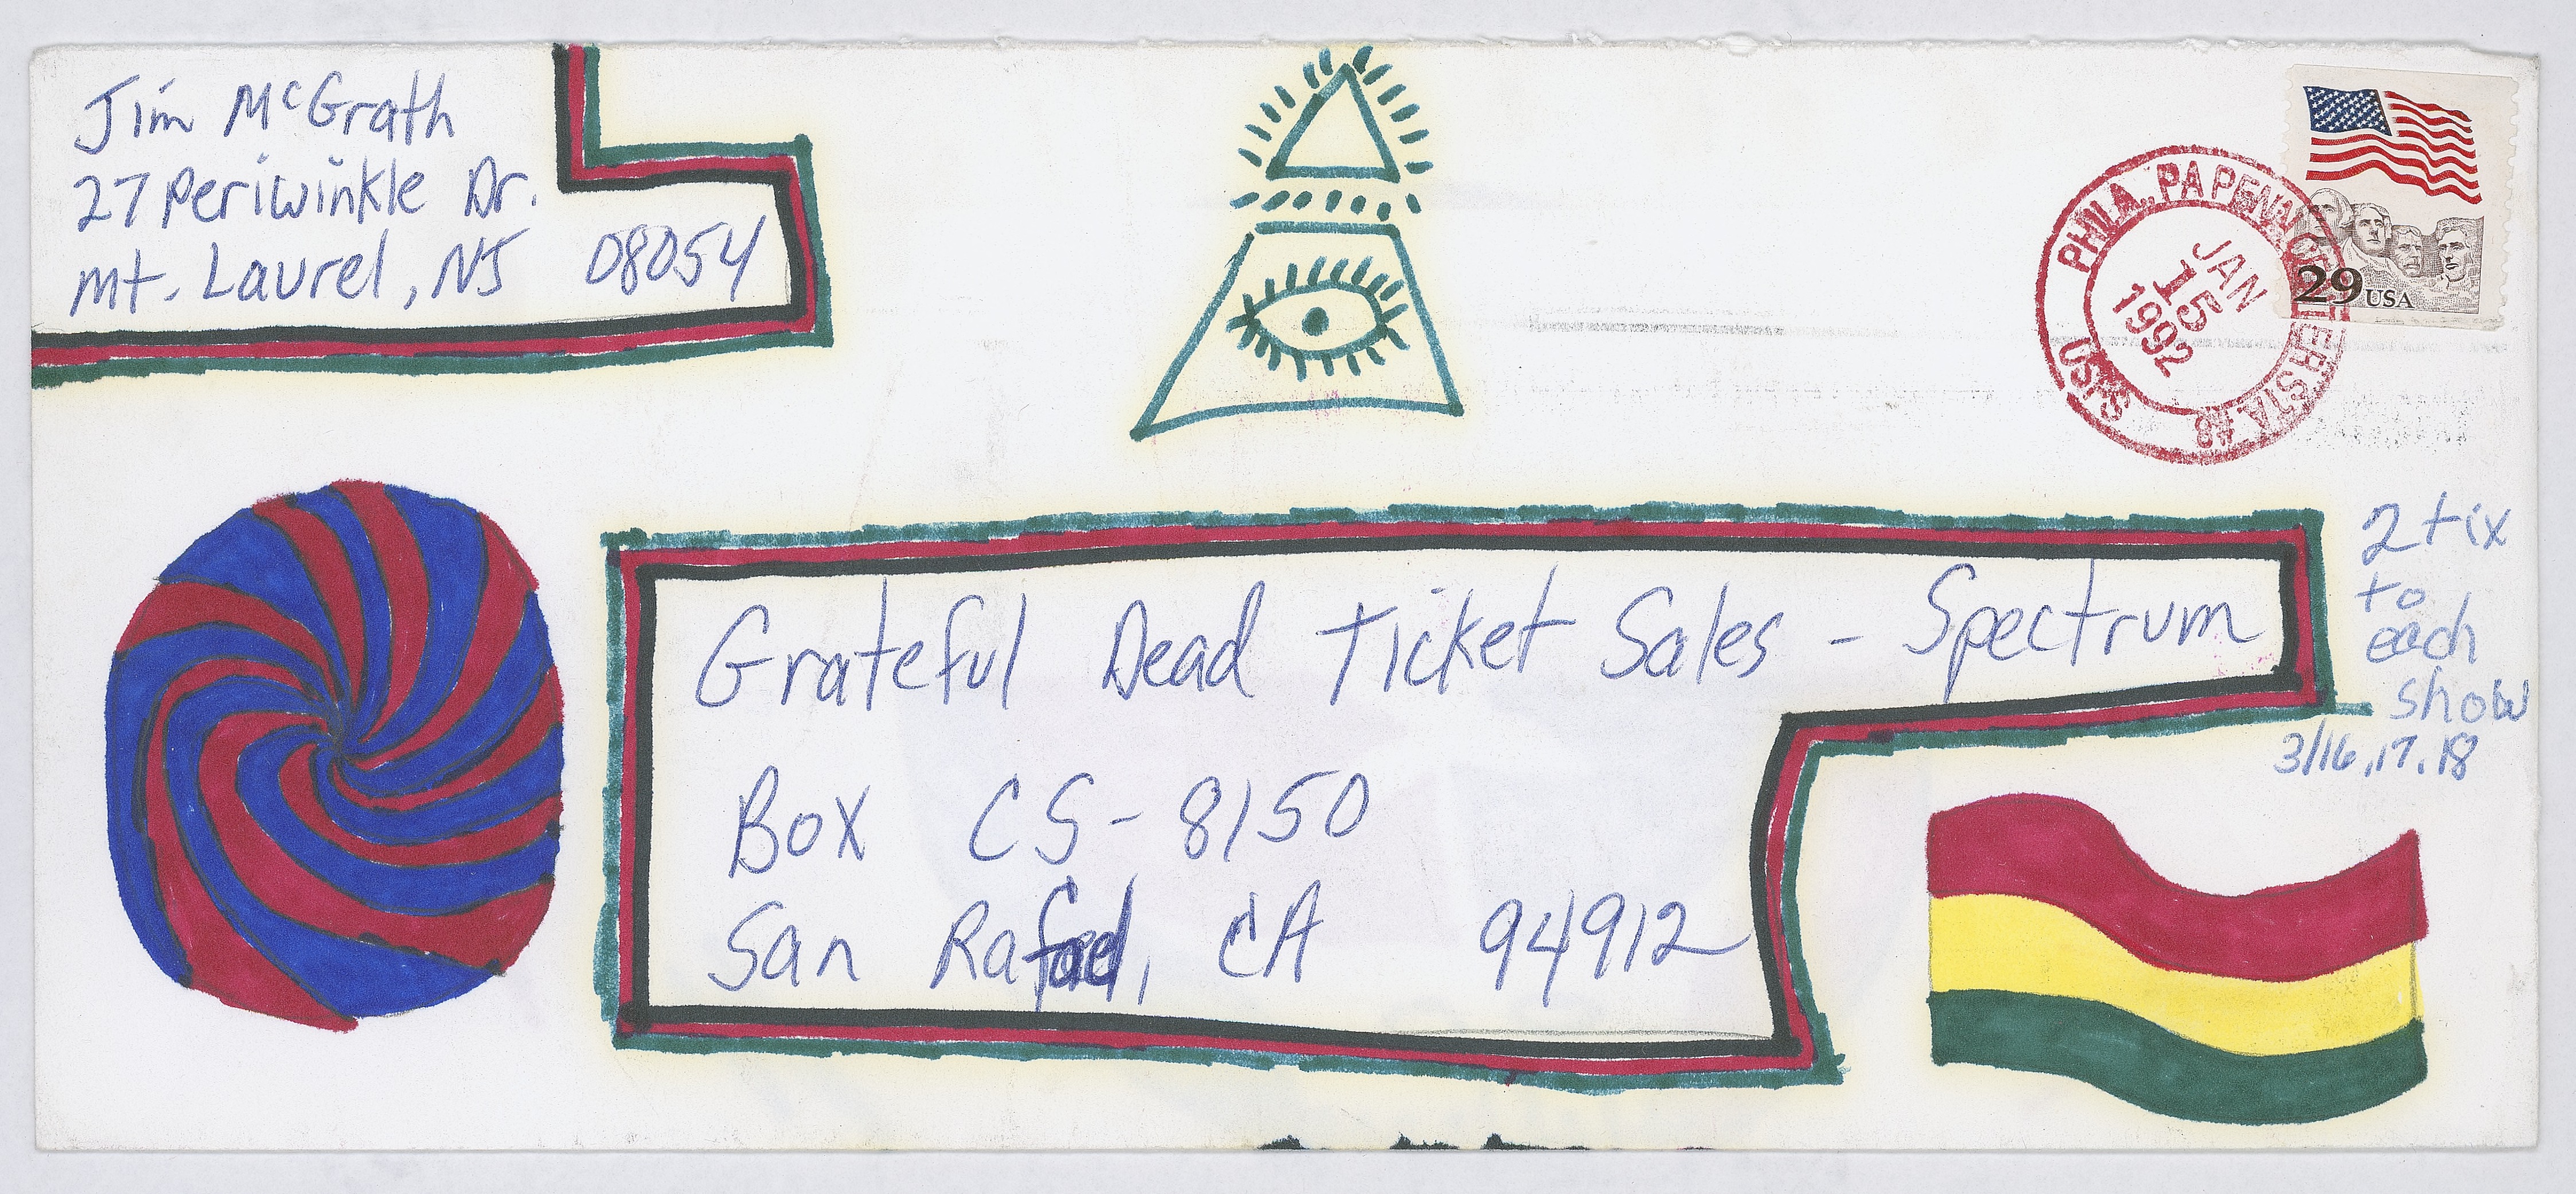 Jim McGrath
27 Periwinkle Dr.
Mt. Laurel, NJ 08054
PHILA., PA PENN CENTER STA. #8
USPS
JAN
15
1992
29 USA
2 tix
to
each
show
3/16,17,18
Grateful Dead Ticket Sales - Spectrum
Box CS-8150
San Rafael, CA 94912